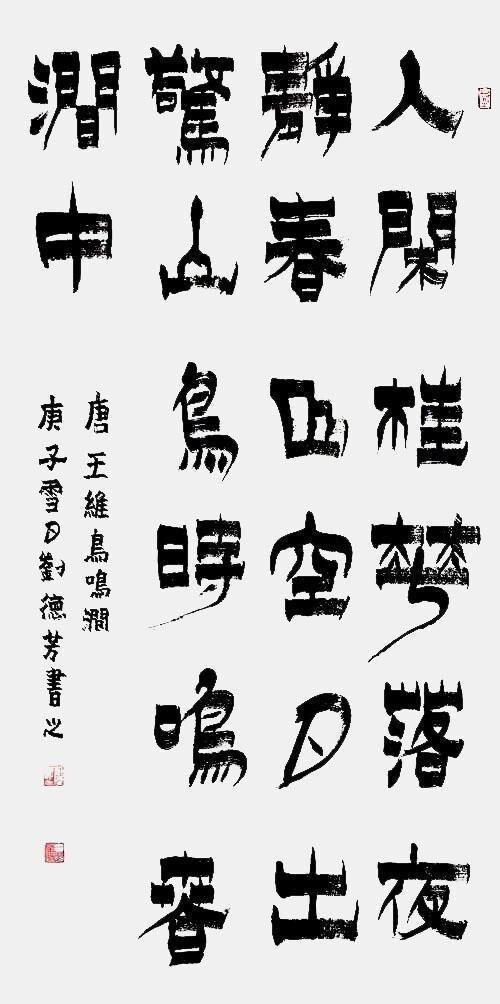 人閑桂華落夜
靜春山空月出
驚山鳥時鳴春
澗中
唐王維鳥鳴澗
庚子雪月劉德芳書之